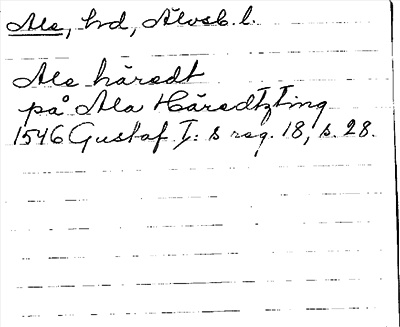 Ale, hrd, Älvsb. l.
Ale häredt
på Ala Häredtz Ting
1546 Gustaf I: s reg. 18, s. 28.